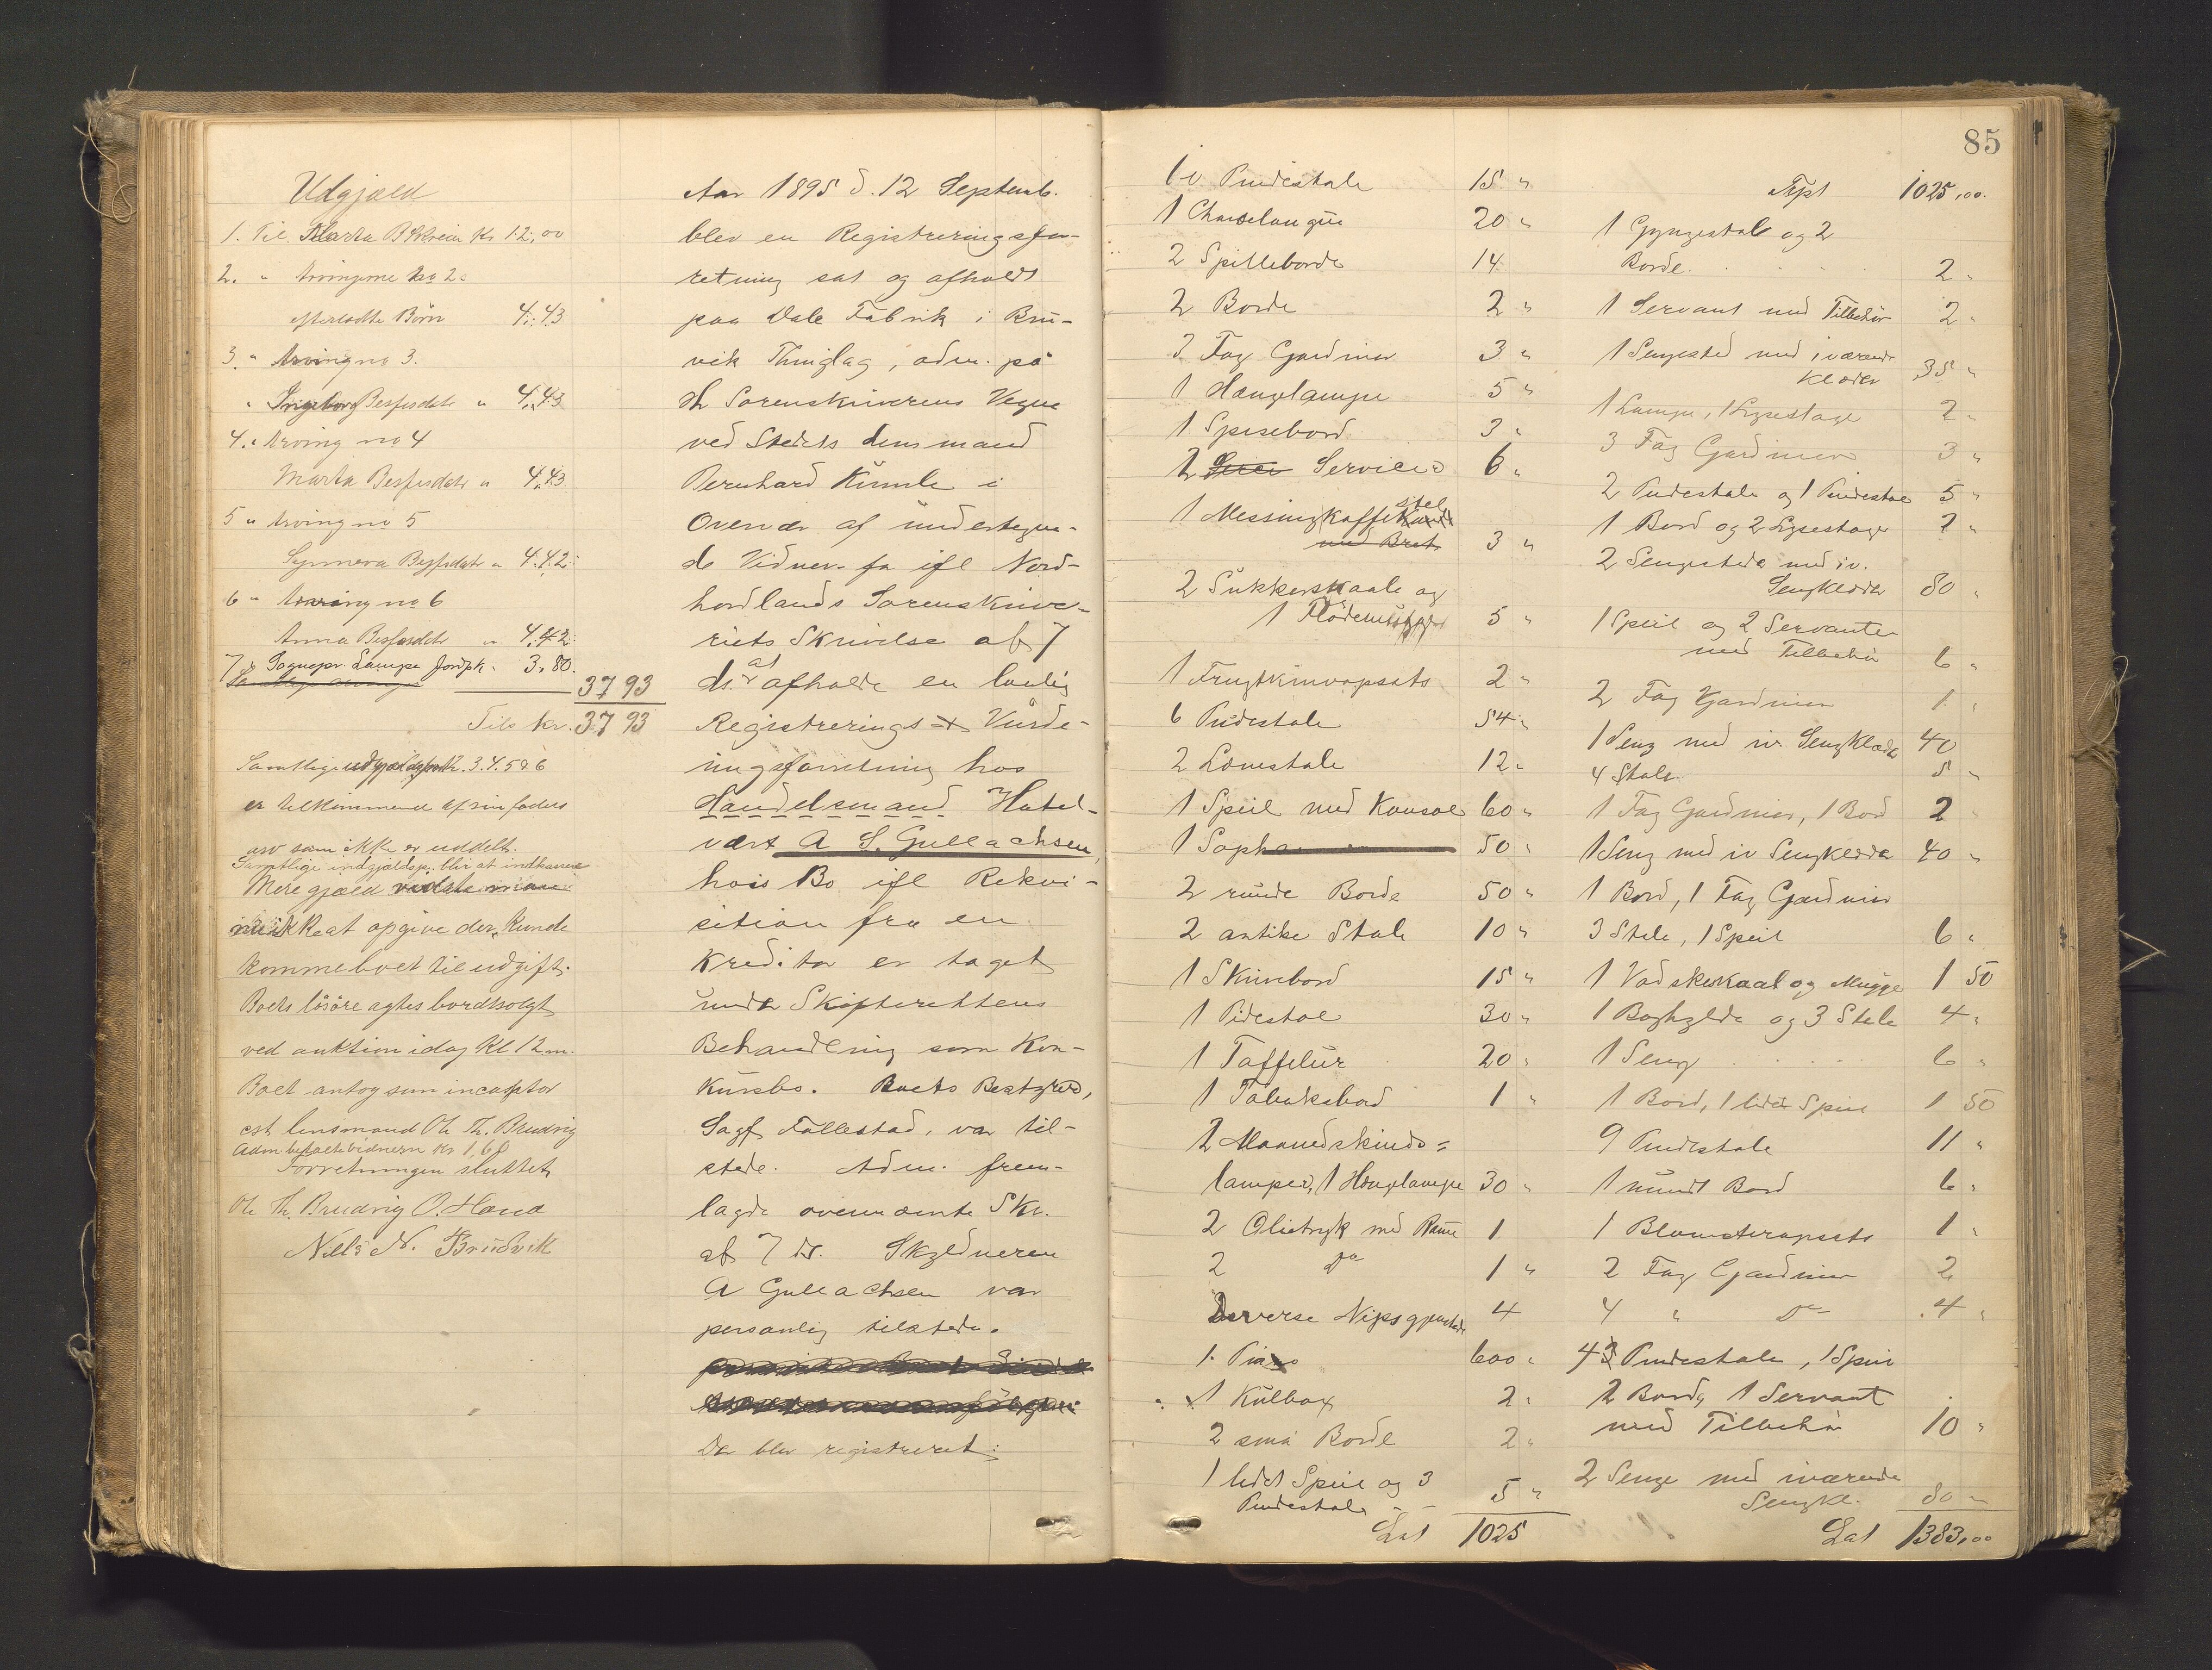 Udgjæld
1. Til Marta B Ekrein Kr 12,00
2. " Arvingerne No 2s
efterladte Börn 4.43
3. " Arving no 3.
" Ingeborg Besfesdatr " 4,43
4. " Arving no 4
Marta Besfesdatr " 4,43
5 " Arving no 5
Synneva Besfesdatr " 4.42
6 " Arving no 6
Anna Besfesdatr " 4.42
7 " Sognepr. Lampe Jordpk. 3,80.
37 93
Tils kr. 37 93
Samtlige udgjældspost 2.3.4.5 & 6
er tilkommende af sin faders
arv som ikke er uddelt.
Samtlige indgjældsp. blir at indkræve
Mere gjæld vidste man
ikke at opgive der kunde
komme boet til udgift.
Boets lösöre agtes bordtsolgt
ved auktion idag Kl 12 m.
Boet antog som incassator
cst. lensmand Ole Th. Brudvig
Adm. betalte vidnern kr 1,60
Forretningen sluttet
Ole Th. Brudvig O. Hana
Nils N. Brudvik
Aar 1895 d. 12 Septemb.
blev en Registreringsfor-
retning sat og afholdt
paa Dale Fabrik i Bru-
vik Thinglag, adm. på
Hr Sorenskriverens Vegne
ved Stedets Lensmand
Bernhard Kunle i
Overvær af undertegne-
de Vidner. fa ifl Nord-
hordlands Sorenskrive-
riets Skrivelse af 7
ds. at afholde en lovlig
Registrerings + Vurde-
ringsforretning hos
Handelsmand Hotel-
vært A S. Gullachsen,
hvis Bo ifl Rekvi-
sition fra en
Kreditor er taget
under Skifterettens
Behandling som Kon-
kursbo. Boets Bestyrer,
Sagf. Fallestad, var til-
stede. Adm. frem-
lagde ovennævnte Skr.
af 7 ds. Skyldneren
A Gullachsen var
personlig tilstede.
Der blev registreret:
85
6 v. Pindestole 15 "
1 Chaiselongue 20 "
2 Spilleborde 14
2 Borde 2 "
3 Fag Gardiner 3 "
1 Hænglampe 5 "
1 Spisebord 3 "
2 Servicer 6 "
1 Messingkaffestel
med Bret 3 "
2 Sukkerskaale og
1 Flödemugge 5 "
1 Frugtknivopsats 2 "
6 Pudestole 54 "
2 Lænestole 12 "
1 Speil med Konsol 60 "
1 Sopha 50 "
2 runde Borde 50 "
2 antike Stole 10 "
1 Skrivbord 15 "
1 Pidestal 30 "
1 Taffelur 20 "
1 Tobaksbord 1 "
2 Maanedskinds=
lamper, 1 Hænglampe 30 "
2 Olietryk med Ramme 1
2 Do 1 "
Diverse Nipsgjenstande 4
1. Piano 600 "
1 Kulbox 2 "
2 små Borde 2 "
1 lidet Speil og 3
Pindestole 5 "
Lat 1025
Trpt 1025,00.
1 Gyngestol og 2
Borde . . . . 2 "
1 Servant med Tilbehör 2 "
1 Sengested med iværende
Klæder 35 "
1 Lampe, 1 Lysestage 2 "
3 Fag Gardiner 3 "
2 Pudestole og 1 Pindestol 5 "
1 Bord og 2 Lysestager 2 "
2 Sengesteder med iv.
Sengklæder 80 "
1 Speil og 2 Servanter
med Tilbehör 6 "
2 Fag Gardiner 1 "
1 Seng med iv. Sengklæder 40
4 Stole 5 "
1 Fag Gardiner, 1 Bord 2
1 Seng med iv Sengklæder 40 "
1 Bord, 1 Fag Gardiner
3 Stole, 1 Speil 6 "
1 Vadskeskaal og Mugge 1 50
1 Boghylde og 3 Stole 4 "
1 Seng . . . . 6 "
1 Bord, 1 lidet Speil 1 50
9 Pindestole 11 "
1 rundt Bord 6 "
1 Blomsteropsats 1 "
2 Fag Gardiner 2
4 " Do 4 "
4 Pindestole, 1 Speil
2 Borde, 1 Servant
med Tilbehör 10 "
2 Senge med iværende
Sengkl. 80 "
Lat 1383,00